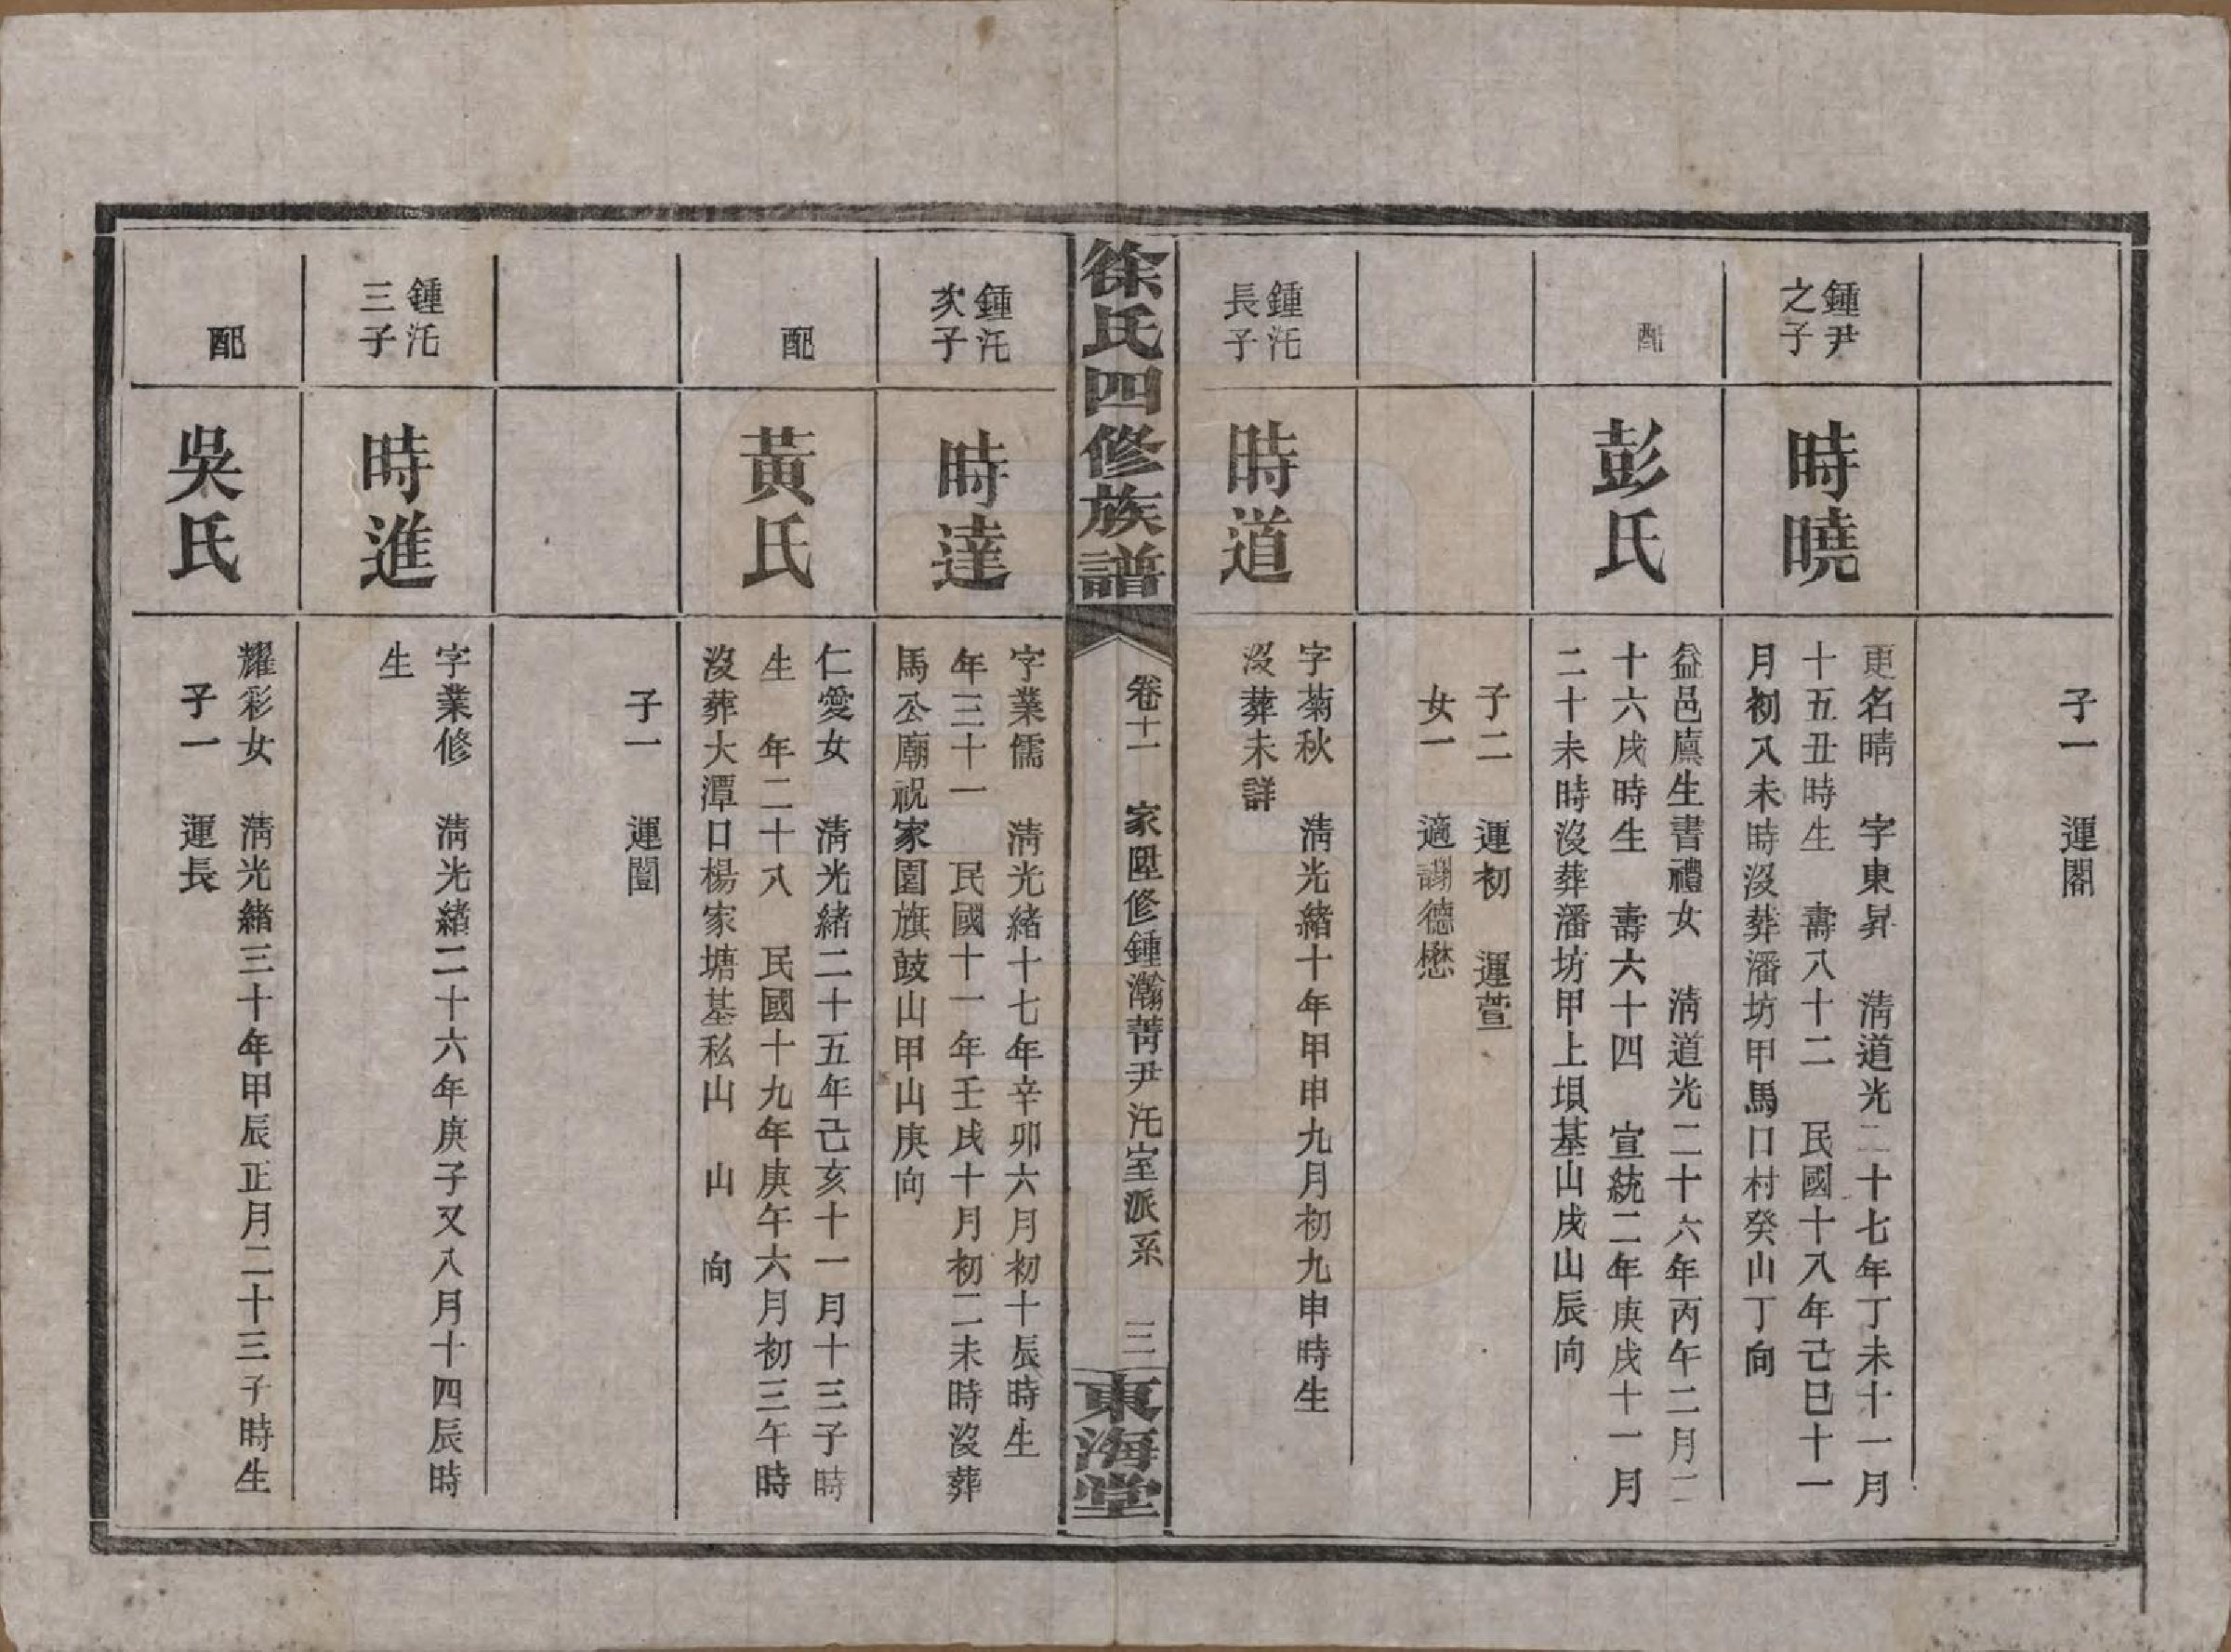 子一　運閣
鍾尹
之子
時曉
更名晴　字東昇　淸道光二十七年丁未十一月
十五丑時生　壽八十二　民國十八年己巳十一
月初八未時沒葬潘坊甲馬口村癸山丁向
配
彭氏
益邑廩生書禮女　淸道光二十六年丙午二月二
十六戌時生　壽六十四　宣統二年庚戌十一月
二十未時沒葬潘坊甲上垻基山戌山辰向
子二　運初　運萱
女一　適謝德懋
鍾汑
長子
時道
字菊秋　淸光緒十年甲申九月初九申時生
沒葬未詳
徐氏四修族譜
卷十一　家陞修鍾瀚菁尹汑室派系　三
東海堂
鍾汑
次子
時達
字業儒　淸光緒十七年辛卯六月初十辰時生
年三十一　民國十一年壬戌十月初二未時沒葬
馬公廟祝家園旗鼓山甲山庚向
配
黃氏
仁愛女　淸光緒二十五年己亥十一月十三子時
生　年二十八　民國十九年庚午六月初三午時
沒葬大潭口楊家塘基私山　山　向
子一　運闓
鍾汑
三子
時進
字業修　淸光緒二十六年庚子又八月十四辰時
生
配
吳氏
耀彩女　淸光緒三十年甲辰正月二十三子時生
子一　運長